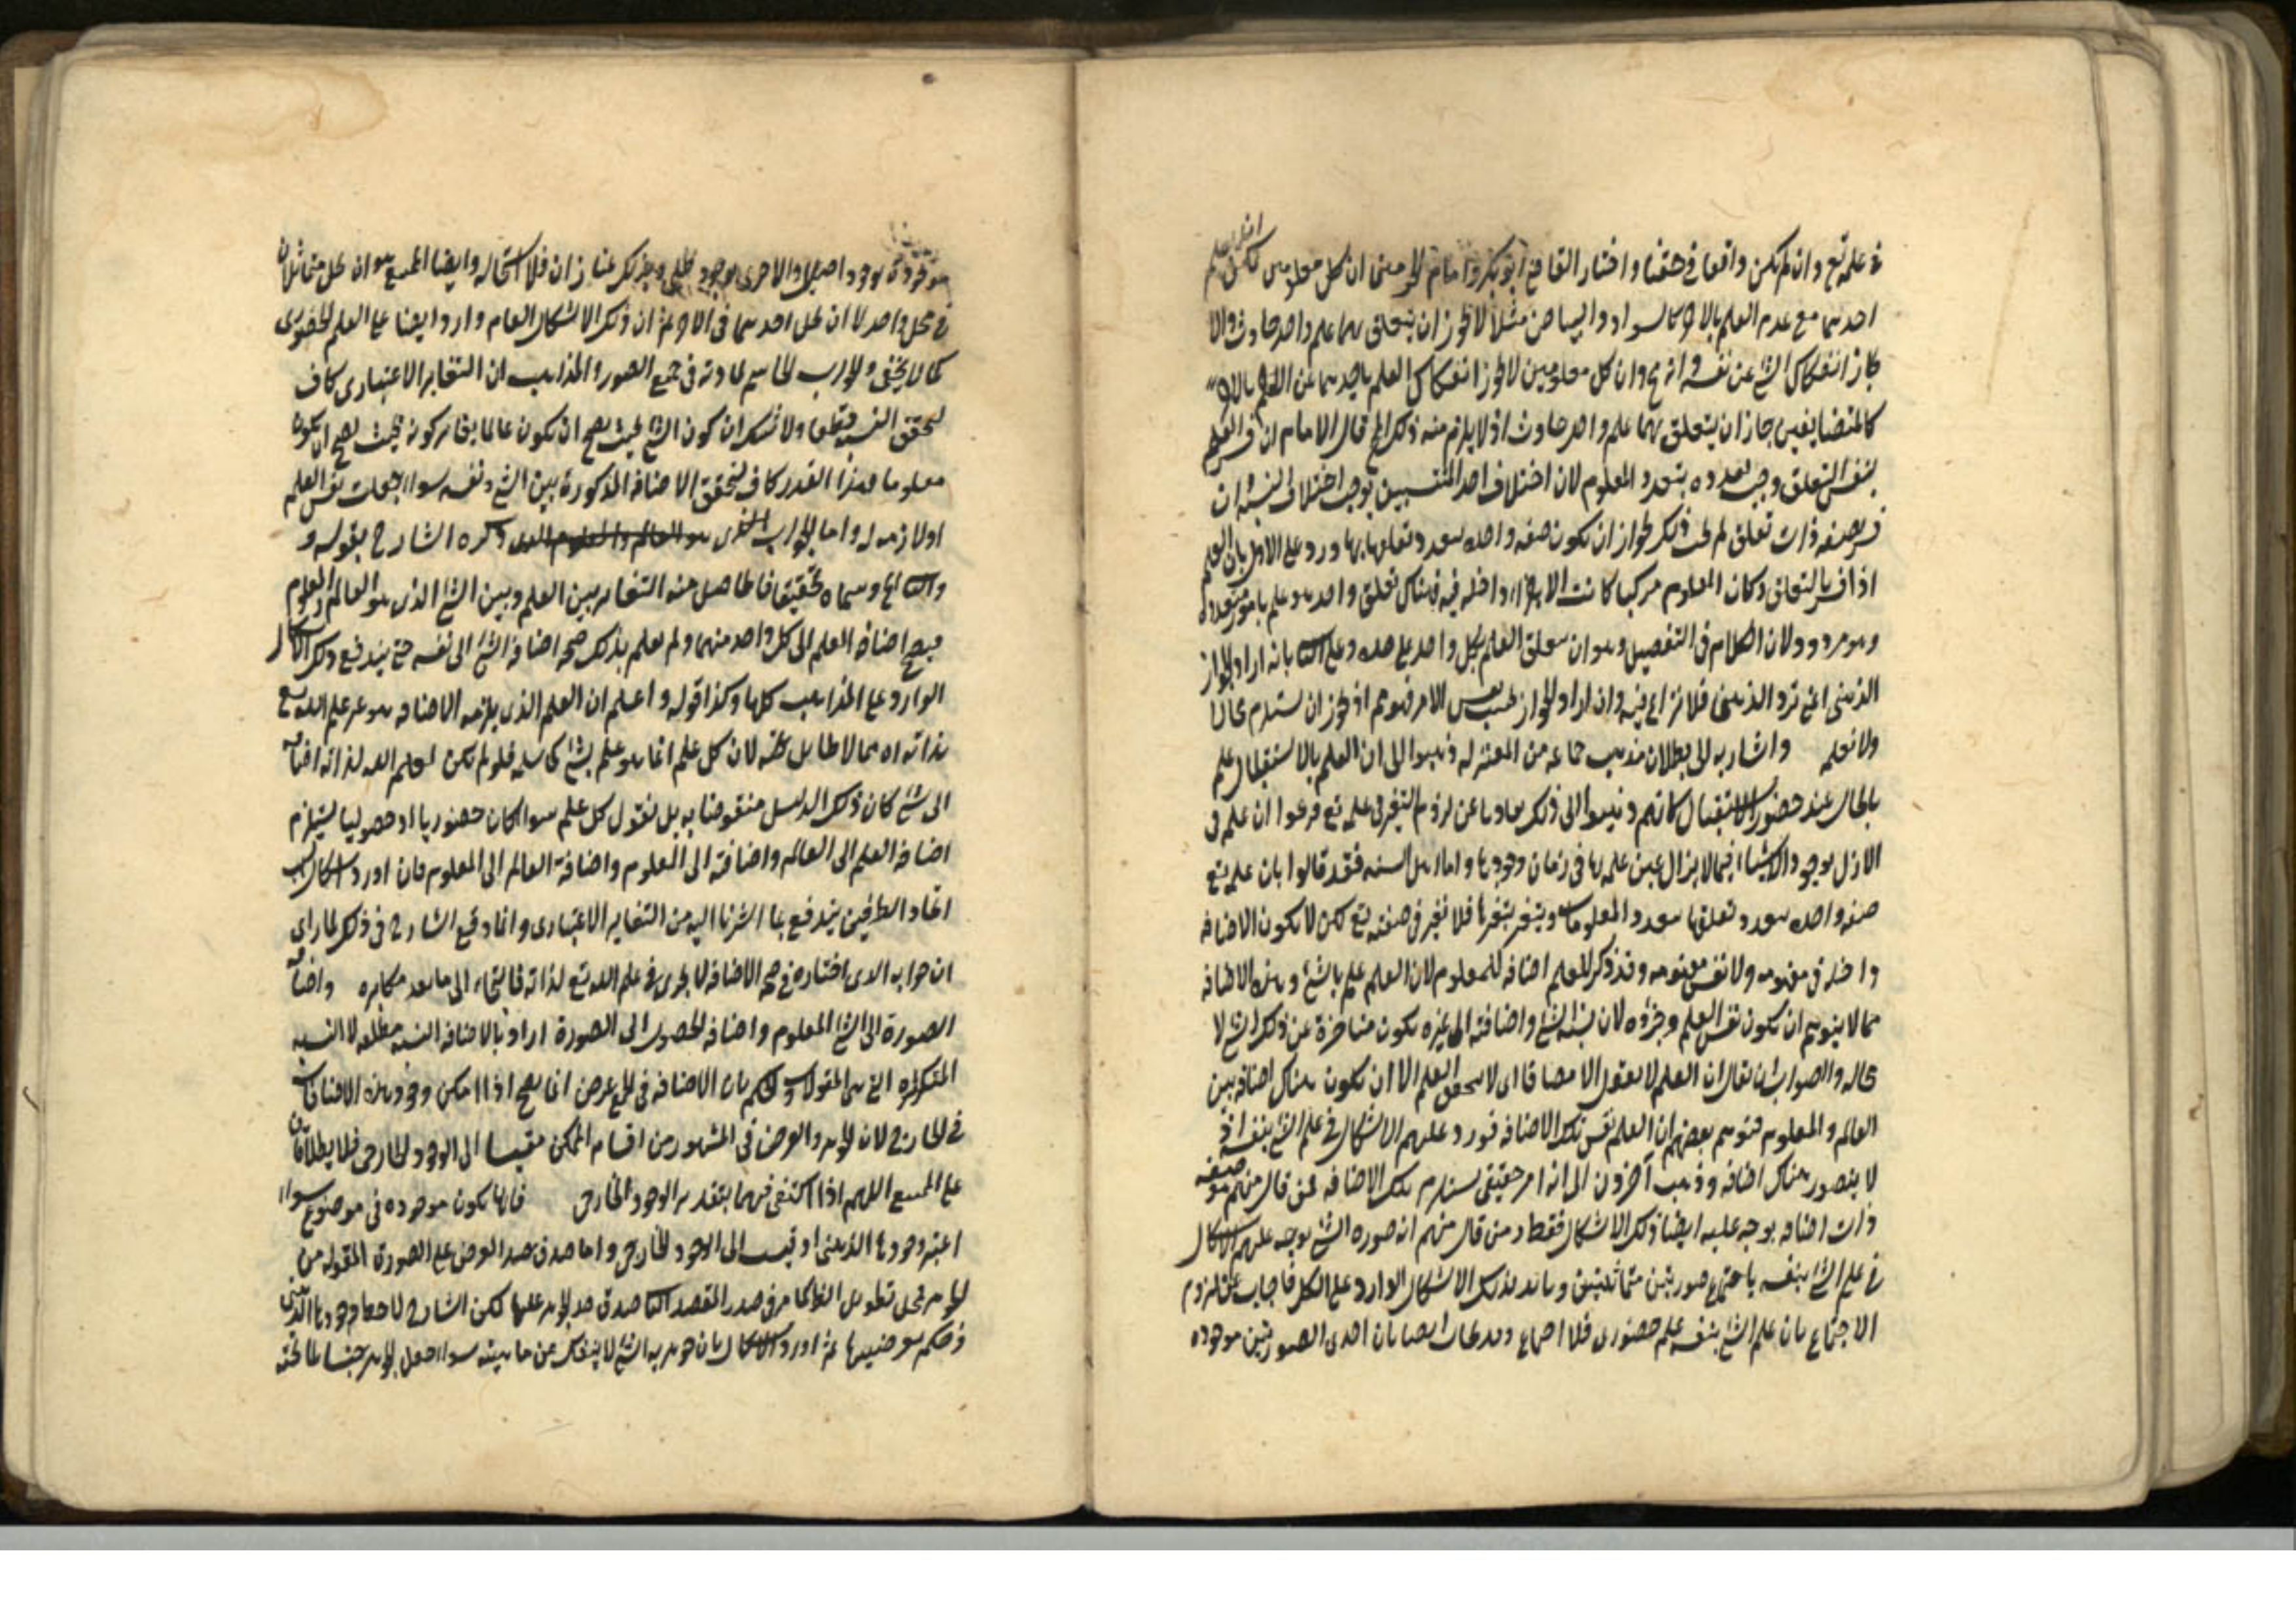 في علمه تع وان لم يكن واقعا في حقنا واختار القاضي ابو بكر وامام الحرمين ان كل معلومين يمكن العلم
احدهما مع عدم العلم بالاخر كالسواد والبياض مثلا لا يجوز ان يتعلق بهما علم واحد حادث والا
جاز انفكاك الشئ عن نفسه وانه مح وان كل معلومين لا يجوز انفكاك العلم باحدهما عن العلم بالاخر
كالمتضايفين جاز ان يتعلق بهما علم واحد حادث اذ لا يلزم منه ذلك المح قال الامام ان فسر العلم
بنفس التعلق وجب تعدده بتعدد المعلوم لان اختلاف احد المنتسبين يوجب اختلاف النسبة وان
فسر بصفة ذات تعلق لم يجب ذلك لجواز ان يكون صفة واحدة يتعدد تعلقاتها ورد على الاول بان العلم
اذا فسر بالتعلق وكان المعلوم مركبا كانت الاجزاء داخلة فيه فهناك تعلق واحد هو علم بامور متعددة
وهو مردود لان الكلام في التفصيل وهو ان يتعلق العلم بكل واحد على حدة وعلى الثا بانه ان اراد الجواز
الذهني اعني تردد الذهن فلا نزاع فيه وان اراد الجواز بحسب نفس الامر فهو مم اذ يجوز ان يستلزم محالا
ولا نعلمه واشار به الى بطلان مذهب جماعة من المعتزلة ذهبوا الى ان العلم بالاستقبال علم
بالحال عند حضور الاستقبال كانهم ذهبوا الى ذلك هاربا عن لزوم التغير في علمه تع فزعموا ان علمه في
الازل بوجود الاشياء فيما لا يزال عين علمه بها في زمان وجودها واما اهل السنة فقد قالوا بان علمه تع
صفة واحدة يتعدد تعلقها بتعدد المعلومات ويتغير بتغيرها فلا تغير في صفته تع لكن لا يكون الاضافة
داخلة في مفهومه ولا نفس مفهومه وقد ذكر للعلم اضافة للمعلوم لان العلم علم بالشئ وهذه الاضافة
مما لا يتوهم ان يكون نفس العلم وجزؤه لان نسبة الشئ واضافته الى غيره يكون متاخرة عن ذلك الشئ لا
محالة والصواب ان يقال ان العلم لا يعقل الا مضافا اى لا يتحقق العلم الا ان يكون هناك اضافة بين
العالم والمعلوم فتوهم بعضهم ان العلم نفس تلك الاضافة فورد عليهم الاشكال في علم الشئ بنفسه اذ
لا يتصور هناك اضافة وذهب آخرون الى انه امر حقيقى يستلزم تلك الاضافة فمن قال منهم هو صفة
ذات اضافة يوجه عليه ايضا ذلك الاشكال فقط ومن قال منهم انه صورة الشئ يوجه عليهم الاشكال
في علم الشئ بنفسه باجتماع صورتين متماثلتين وهذا كذلك الاشكال الوارد على الكل فاجاب عن لزوم
الاجتماع بان علم الشئ بنفسه علم حضورى فلا اجتماع وقد يجاب ايضا بان احدى الصورتين موجودة
موجودة بوجود اصيل والاخرى بوجود ظلى وبذلك يمتازان فلا استحالة وايضا الممتنع هو ان يحل متماثلان
في محل واحد لا ان يحل احدهما في الاخر ثم ان ذلك الاشكال العام وارد ايضا على العلم الحضورى
كما لا يخفى والجواب الحاسم لمادته في جميع الصور والمذاهب ان التغاير الاعتبارى كاف
لتحقق النسبة قطعا ولا شك ان كون الشئ بحيث يصح ان يكون عالما يغاير كونه بحيث يصح ان يكون
معلوما فهذا القدر كاف لتحقق الاضافة المذكورة بين الشئ ونفسه سواء جعلت نفس العلم
او لازمة له واما الجواب الذى ذكره الشارح بقوله و
والثا اع وسماه تحقيقا فالحاصل منه التغاير بين العلم وبين الشئ الذى هو العالم والمعلوم
فيصح اضافة العلم الى كل واحد منهما ولم يعلم بذلك صحة اضافة الشئ الى نفسه حتى يندفع ذلك الاشكال
الوارد على المذاهب كلها وكذا قوله واعلم ان العلم الذى يلزمه الاضافة هو غير علم الله تع
بذاته اه مما لا طايل تحته لان كل علم انما هو علم بشئ كما سلف فلو لم يكن لعلم الله لذاته اضافة
الى شئ كان ذلك الدليل منقوضا به بل نقول كل علم سواء كان حضوريا او حصوليا يستلزم
اضافة العلم الى العالم واضافته الى المعلوم واضافة العالم الى المعلوم فان اورد اشكال بسبب
اتحاد الطرفين يندفع بما اشرنا اليه من التغاير الاعتبارى وانما وقع الشارح في ذلك لما راى
ان جوابه الذى اختاره في صحة الاضافة لا يجرى في علم الله تع لذاته فالتجاء الى ما يعد مكابرة واضافة
الصورة الى الشئ المعلوم واضافة الحصول الى الصورة اراد بالاضافة النسبة مطلقا لا النسبة
المتكررة التى هى المقولة والحكم بان الاضافة في الكل عرض انما يصح اذا امكن وجود هذه الاضافات
في الخارج لان الجوهر والعرض في المشهور من اقسام الممكن مقيسا الى الوجود الخارجى فلا يطلقان
على الممتنع اللهم اذا اكتفى فيهما بتقدير الوجود الخارجى فانها يكون موجودة في موضوع سواء
اعتبر وجودها الذهنى او قيست الى الوجود الخارجى واما صدق حد العرض على الصورة المقولة من
الجوهر فمحل تطويل الفناكما مر في صدر المقصد الثا صدق حد الجوهر عليها لكن الشارح لاحظ وجودها الذهنى
وحكم بعرضيتها ثم اورد الاشكال بان جوهرية الشئ لا ينفك عن ماهيته سواء جعل الجوهر جنسا لما تحته